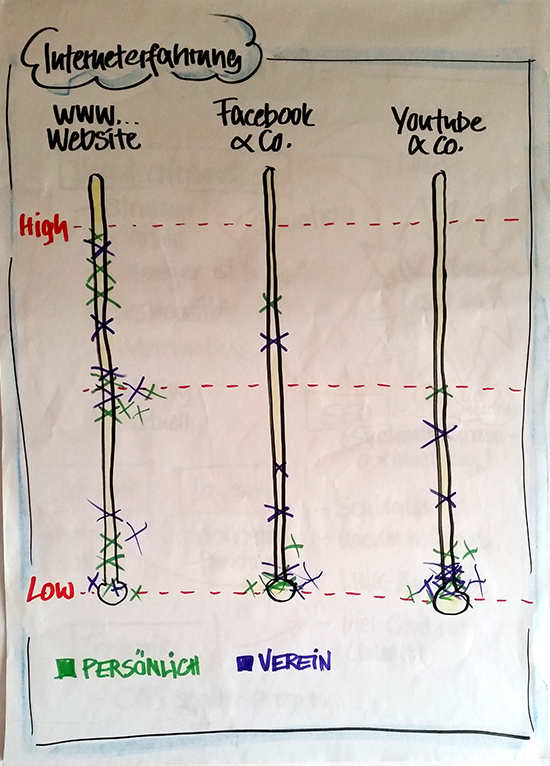 Interneterfahrung
www...
Website
Facebook
& Co.
Youtube
& Co.
High
Low
PERSÖNLICH
VEREIN